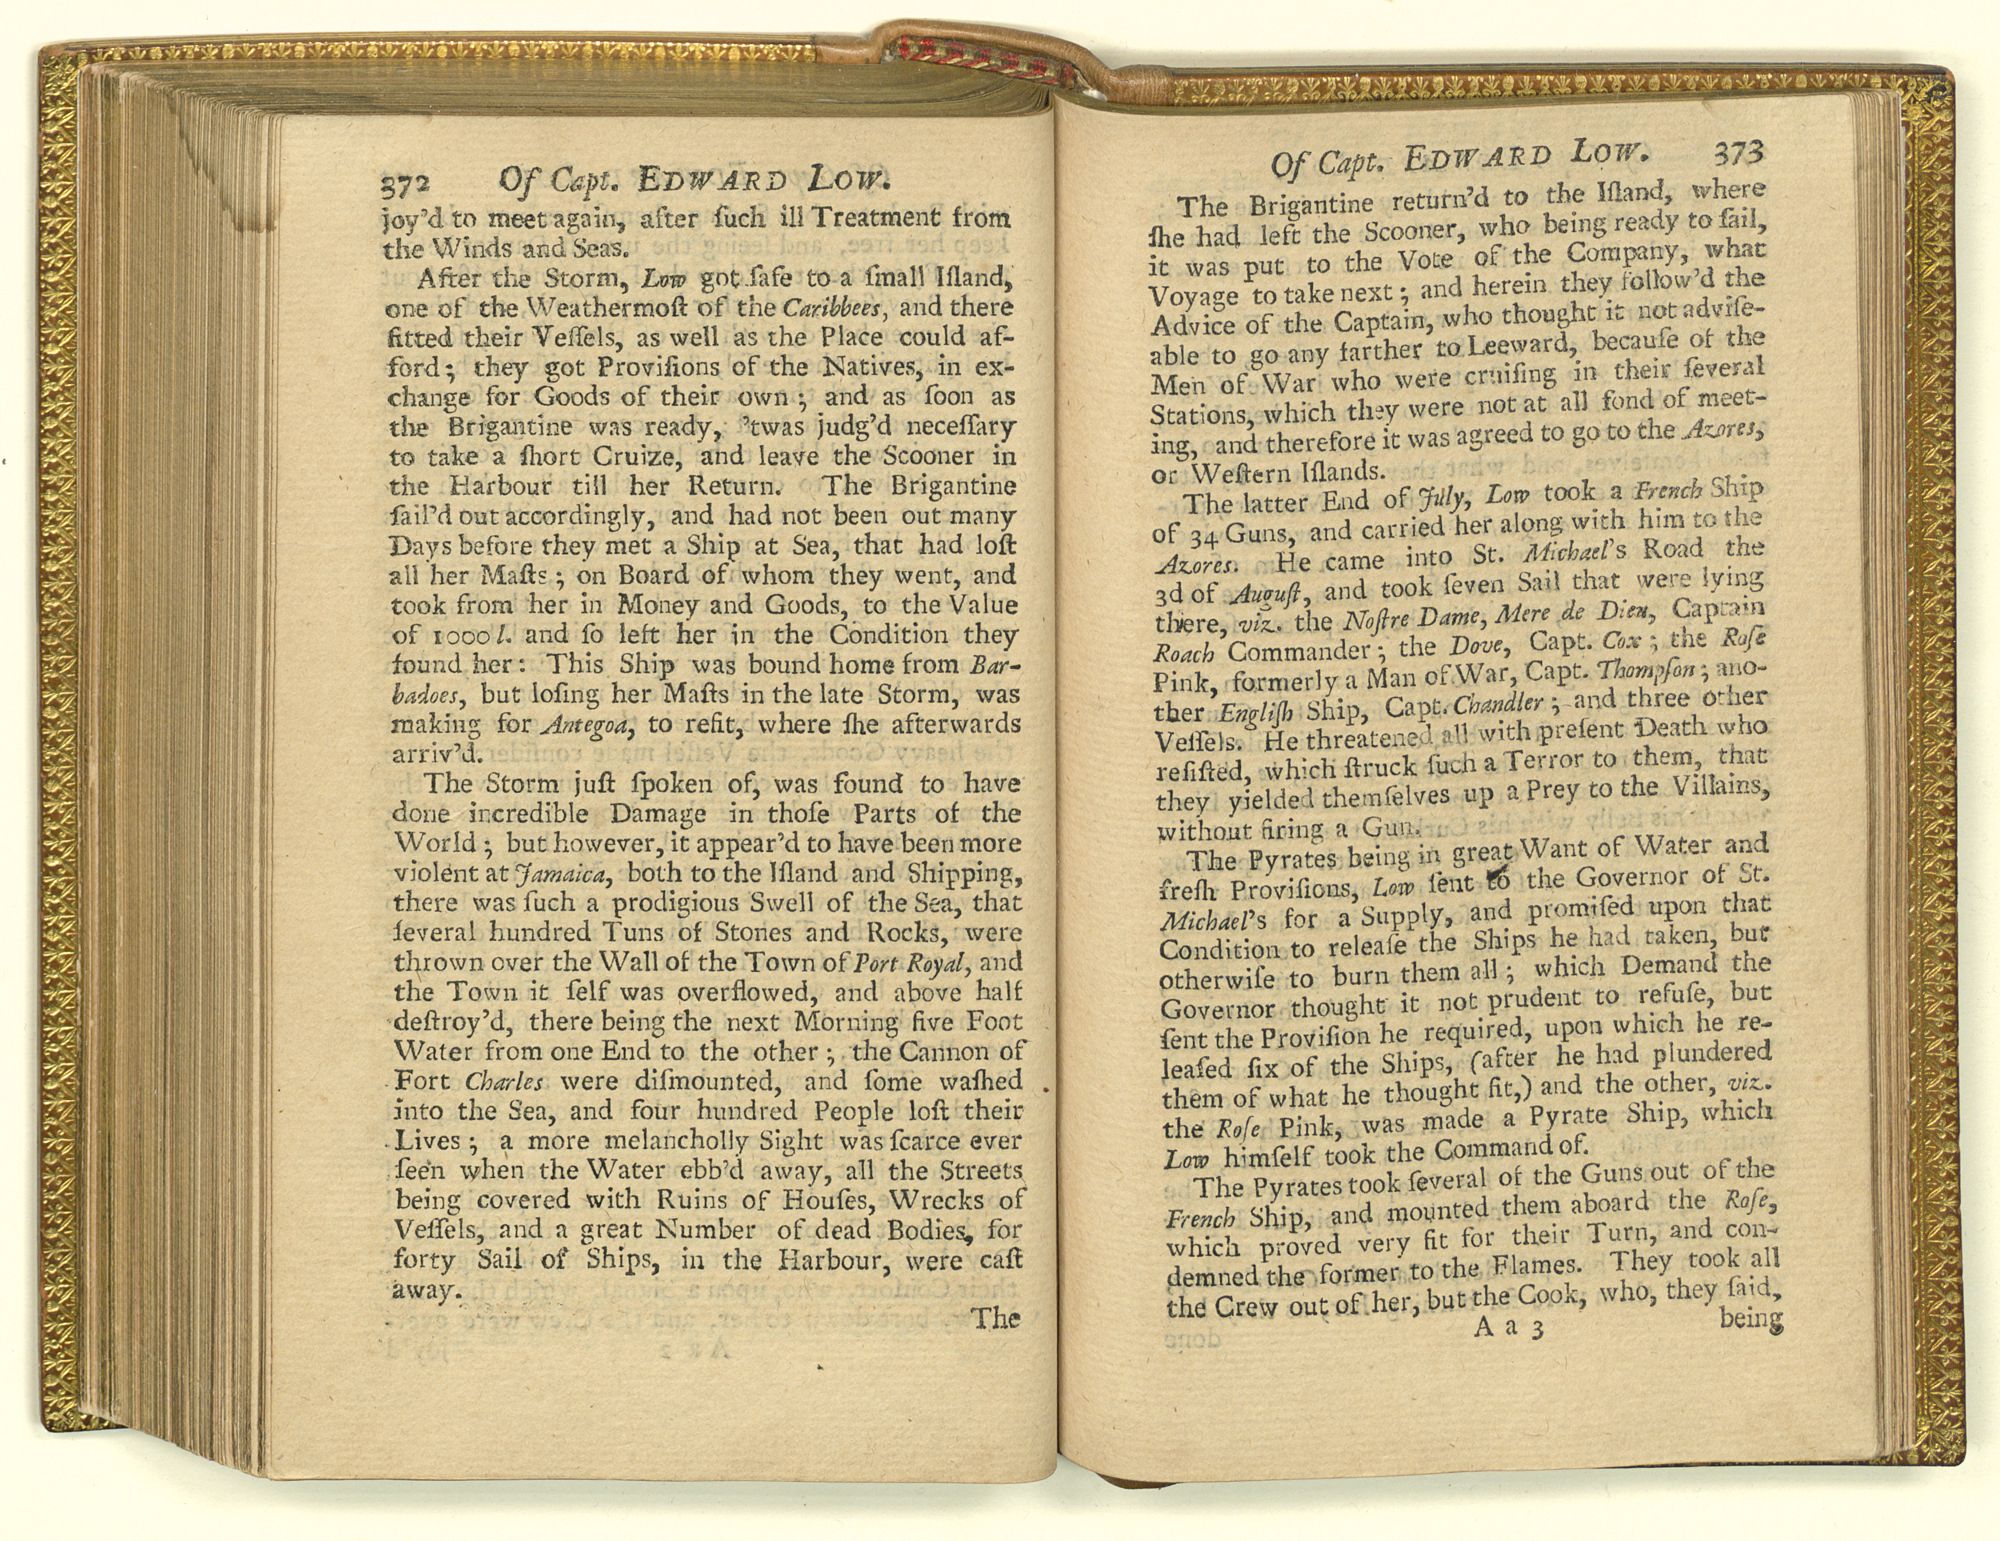 372 Of Capt. EDWARD LOW.
joy'd to meet again, after ſuch ill Treatment from
the Winds and Seas.
After the Storm, Low got ſafe to a ſmall Iſland,
one of the Weathermoſt of the Caribbees, and there
fitted their Veſſels, as well as the Place could af-
ford; they got Proviſions of the Natives, in ex-
change for Goods of their own; and as ſoon as
the Brigantine was ready, 'twas judg'd neceſſary
to take a ſhort Cruize, and leave the Scooner in
the Harbour till her Return. The Brigantine
ſail'd out accordingly, and had not been out many
Days before they met a Ship at Sea, that had loſt
all her Maſts; on Board of whom they went, and
took from her in Money and Goods, to the Value
of 1000 l. and ſo left her in the Condition they
found her: This Ship was bound home from Bar-
badoes, but loſing her Maſts in the late Storm, was
making for Antegoa, to refit, where ſhe afterwards
arriv'd.
The Storm juſt ſpoken of, was found to have
done incredible Damage in thoſe Parts of the
World; but however, it appear'd to have been more
violent at Jamaica, both to the Iſland and Shipping,
there was ſuch a prodigious Swell of the Sea, that
ſeveral hundred Tuns of Stones and Rocks, were
thrown over the Wall of the Town of Port Royal, and
the Town it ſelf was overflowed, and above half
deſtroy'd, there being the next Morning five Foot
Water from one End to the other; the Cannon of
Fort Charles were diſmounted, and ſome waſhed
into the Sea, and four hundred People loſt their
Lives; a more melancholly Sight was ſcarce ever
ſeen when the Water ebb'd away, all the Streets
being covered with Ruins of Houſes, Wrecks of
Veſſels, and a great Number of dead Bodies, for
forty Sail of Ships, in the Harbour, were caſt
away.
The
Of Capt. EDWARD LOW. 373
The Brigantine return'd to the Iſland, where
ſhe had left the Scooner, who being ready to ſail,
it was put to the Vote of the Company, what
Voyage to take next; and herein they follow'd the
Advice of the Captain, who thought it not adviſe-
able to go any farther to Leeward, becauſe of the
Men of War who were cruiſing in their ſeveral
Stations, which they were not at all fond of meet-
ing, and therefore it was agreed to go to the Azores,
or Weſtern Iſlands.
The latter End of July, Low took a French Ship
of 34 Guns, and carried her along with him to the
Azores. He came into St. Michael's Road the
3d of Auguſt, and took ſeven Sail that were lying
there, viz. the Noſtre Dame, Mere de Dieu, Captain
Roach Commander; the Dove, Capt. Cox; the Roſe
Pink, formerly a Man of War, Capt. Thompſon; ano-
ther Engliſh Ship, Capt. Chandler; and three other
Veſſels. He threatened all with preſent Death who
reſiſted, which ſtruck ſuch a Terror to them, that
they yielded themſelves up a Prey to the Villains,
without firing a Gun.
The Pyrates being in great Want of Water and
freſh Proviſions, Low ſent to the Governor of St.
Michael's for a Supply, and promiſed upon that
Condition to releaſe the Ships he had taken, but
otherwiſe to burn them all; which Demand the
Governor thought it not prudent to refuſe, but
ſent the Proviſion he required, upon which he re-
leaſed ſix of the Ships, (after he had plundered
them of what he thought fit,) and the other, viz.
the Roſe Pink, was made a Pyrate Ship, which
Low himſelf took the Command of.
The Pyrates took ſeveral of the Guns out of the
French Ship, and mounted them aboard the Roſe,
which proved very fit for their Turn, and con-
demned the former to the Flames. They took all
the Crew out of her, but the Cook, who, they ſaid,
A a 3 being